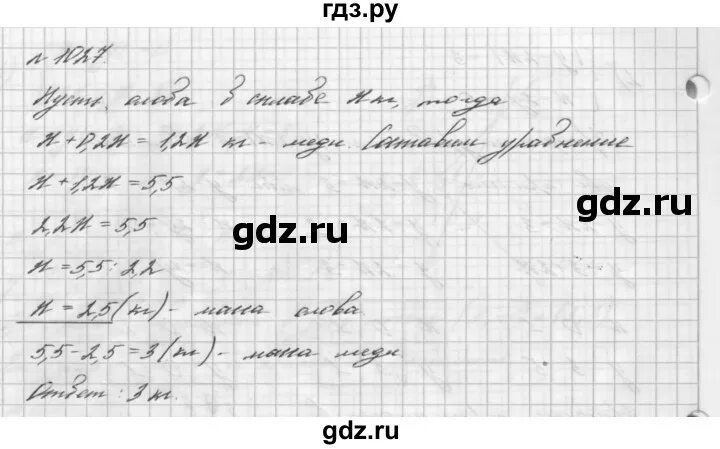 гдз.ру
№ 1027.
Пусть олова в сплаве x кг, тогда
x + 0,2x = 1,2x кг - меди. Составим уравнение
x + 1,2x = 5,5
2,2x = 5,5
gdz.ru
gdz.ru
x = 5,5 : 2,2
x = 2,5 (кг) - масса олова.
5,5 - 2,5 = 3 (кг) - масса меди
Ответ: 3 кг.
gdz.ru